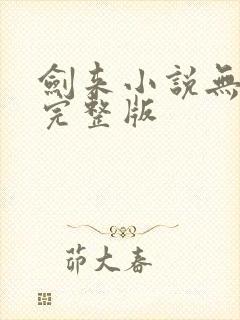 劍来小說無
完整版
茆大春